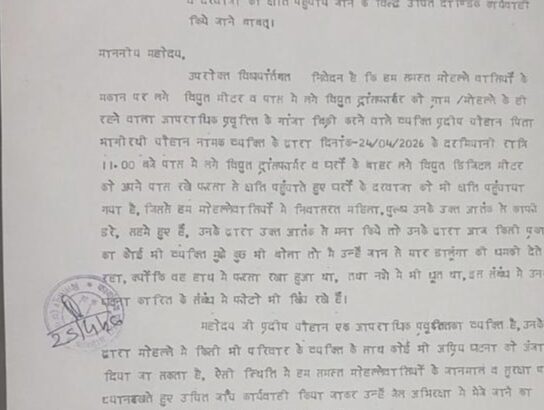 व दरवाजा को क्षति पहुंचाये जाने के विरूद्ध उचित दाण्डिक कार्यवाही
किये जाने बाबत्।
माननीय महोदय,
उपरोक्त विषयांर्तगत निवेदन है कि हम समस्त मोहल्ले वासियों के
मकान पर लगे विद्युत मीटर व पास मे लगे विद्युत ट्रांसफार्मर को ग्राम /मोहल्ले के ही
रहने वाला आपराधिक प्रवृत्ति के गांजा बिक्री करने वाले व्यक्ति प्रदीप चौहान पिता
भागीरथी चौहान नामक व्यक्ति के द्वारा दिनांक-24/04/2026 के दरमियानी रात्रि
11.00 बजे पास मे लगे विद्युत ट्रांसफार्मर व घरों के बाहर लगे विद्युत डिजिटल मीटर
को अपने पास रखे फरसा से क्षति पहुंचाते हुए घरों के दरवाजा को भी क्षति पहुंचाया
गया है, जिससे हम मोहल्लेवासियों मे निवासरत महिला, पुरूष उनके उक्त आतंक से काफी
डरे, सहमे हुए हैं, उनके द्वारा उक्त आतंक से मना किये तो उनके द्वारा आज किसी
का कोई भी व्यक्ति मुझे कुछ भी बोला तो मै उन्हें जान से मार डालूंगा की धमकी देते
रहा, क्योंकि वह हाथ मे फरसा रखा हुआ था, तथा नशे मे भी धूत था, इस संबंध मे
घटना कारित के संबंध मे फोटो भी खिंच रखे हैं।
25/4/26
महोदय जी प्रदीप चौहान एक आपराधिक व्यक्ति है,
द्वारा मोहल्ले मे किसी भी परिवार के व्यक्ति के साथ कोई भी अप्रिय घटना को अंजा
दिया जा सकता है, ऐसी स्थिति मे हम समस्त मोहल्लेवासियों के जानमाल व सुरक्षा
ध्यानरखते हुए उचित जॉच कार्यवाही किया जाकर उन्हें जेल अभिरक्षा मे भेजे जाने का